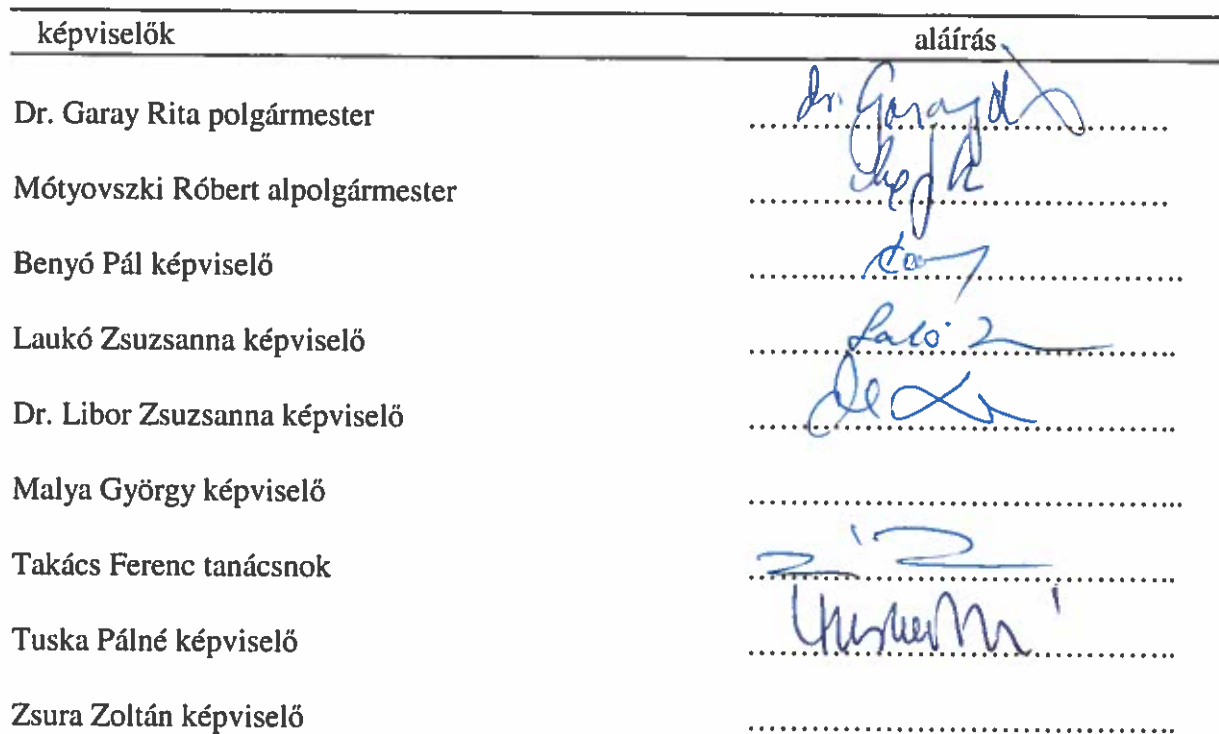 képviselők aláírás
Dr. Garay Rita polgármester dr. Garay
Mótyovszki Róbert alpolgármester
Benyó Pál képviselő
Laukó Zsuzsanna képviselő
Dr. Libor Zsuzsanna képviselő
Malya György képviselő
Takács Ferenc tanácsnok
Tuska Pálné képviselő
Zsura Zoltán képviselő